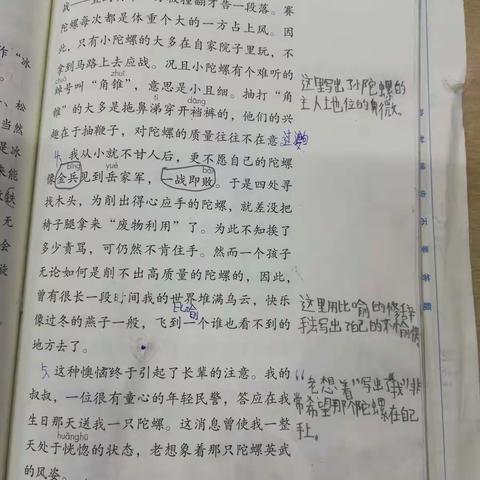 被撞翻才告一段落。赛
陀螺每次都是体重个大的一方占上风。因
此,只有小陀螺的大多在自家院子里玩,不
拿到马路上去应战。况且小陀螺有个难听的
chuò zhuī
绰号叫“角锥”,意思是小且细。抽打“角
tì dāng
锥”的大多是拖鼻涕穿开裆裤的,他们的兴
趣在于抽鞭子,对陀螺的质量往往不在意
4
我从小就不甘人后,更不愿自己的陀螺
bīng yuè bài
像金兵见到岳家军,一战即败。于是四处寻
找木头,为削出得心应手的陀螺,就差没把
椅子腿拿来“废物利用”了。为此不知挨了
多少责骂,可仍然不肯住手。然而一个孩子
无论如何是削不出高质量的陀螺的,因此,
曾有很长一段时间我的世界堆满乌云,快乐
比喻
像过冬的燕子一般,飞到一个谁也看不到的
地方去了。
5
这种懊恼终于引起了长辈的注意。我的
叔叔,一位很有童心的年轻民警,答应在我
生日那天送我一只陀螺。这消息曾使我一整
huǎng hū
天处于恍惚的状态,老想象着那只陀螺英武
的风姿。
这里写出了小陀螺的
主人地位的卑微。
这里用比喻的修辞
手法写出了自己的不愉快。
“老想着”写出了“我”非
常希望那个陀螺在自己
手上。
作“冰
松
当然
是冰
来能
轶
无
会
旋